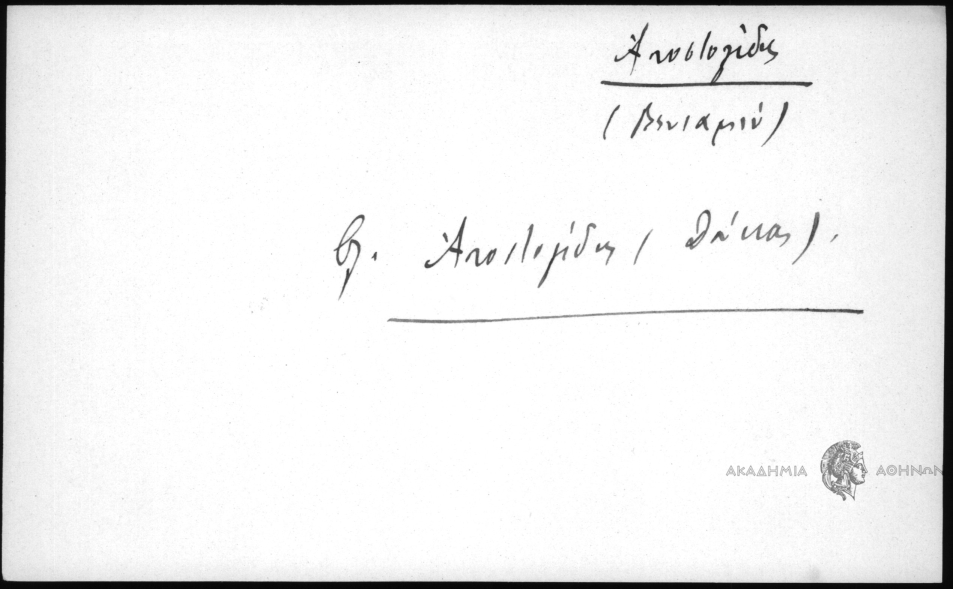 Ἀποστολίδης
(Βενιαμίν)
βλ. Ἀποστολίδης (Θάνας).
ΑΚΑΔΗΜΙΑ ΑΘΗΝΩΝ